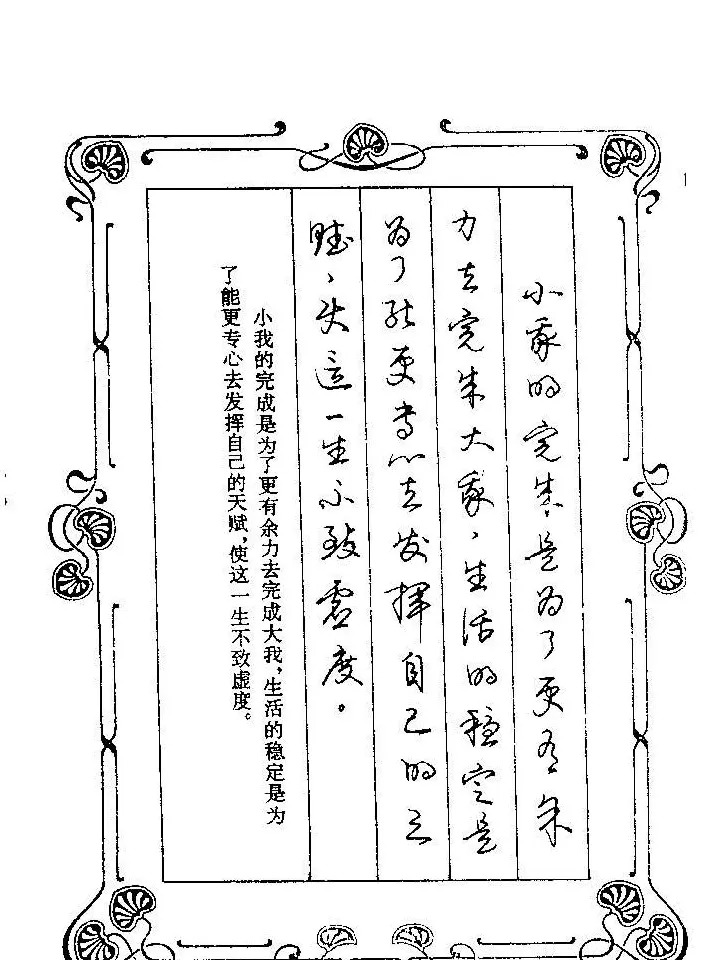 小我的完成、是为了更有余
力去完成大我、生活的稳定是
为了能更专心去发挥自己的天
赋、使这一生不致虚度。
小我的完成是为了更有余力去完成大我，生活的稳定是为
了能更专心去发挥自己的天赋，使这一生不致虚度。